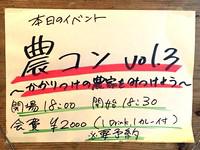 本日のイベント
農コン vol.3
～かかりつけの農家をみつけよう～
開場 18:00 開始 18:30
会費 ¥2000 (1Drink,1カレー付)
※要予約